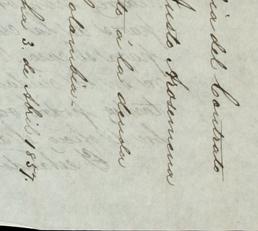 ia del Contrato
Justo Arosemena
to á la deuda
olombia.
ha 3. de Abril 1857.